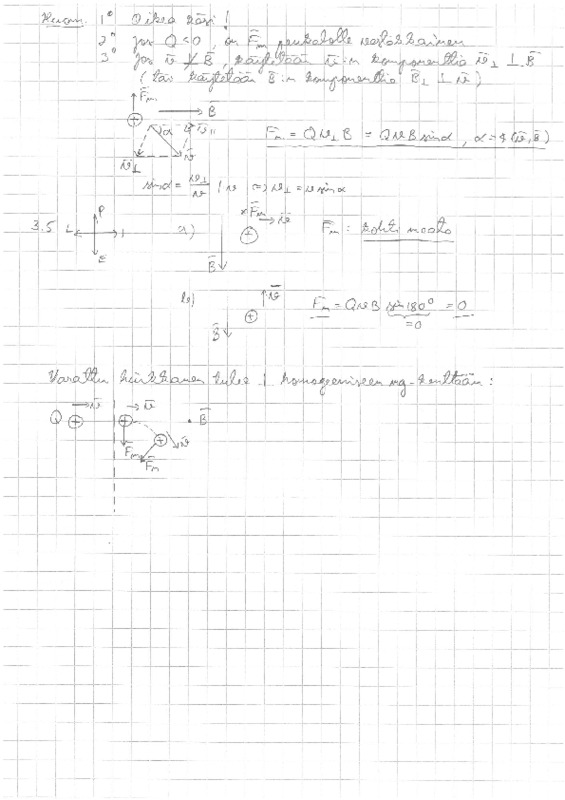 Huom. 1° Oikea käsi!
2° jos Q < 0, on F̄ₘ peukalolle vastakkainen
3° jos v̄ ⊥̸ B̄, käytetään v̄:n komponenttia v̄⊥ ⊥ B̄
(tai käytetään B̄:n komponenttia B̄⊥ ⊥ v̄)
F̄ₘ
B̄
+
α v̄∥
v̄⊥ v̄
Fₘ = Qv⊥B = QvB sinα, α = ∢(v̄,B̄)
sinα = v⊥/v | · v ⇒ v⊥ = v sinα
3.5 P L I E
a) × F̄ₘ v̄ + B̄
F̄ₘ: kohti maata
b) v̄ + B̄
Fₘ = QvB sin180° = 0
= 0
Varattu hiukkanen tulee ⊥ homogeeniseen mg-kenttään:
Q + v̄ + v̄ · B̄
F̄ₘ + v̄
F̄ₘ